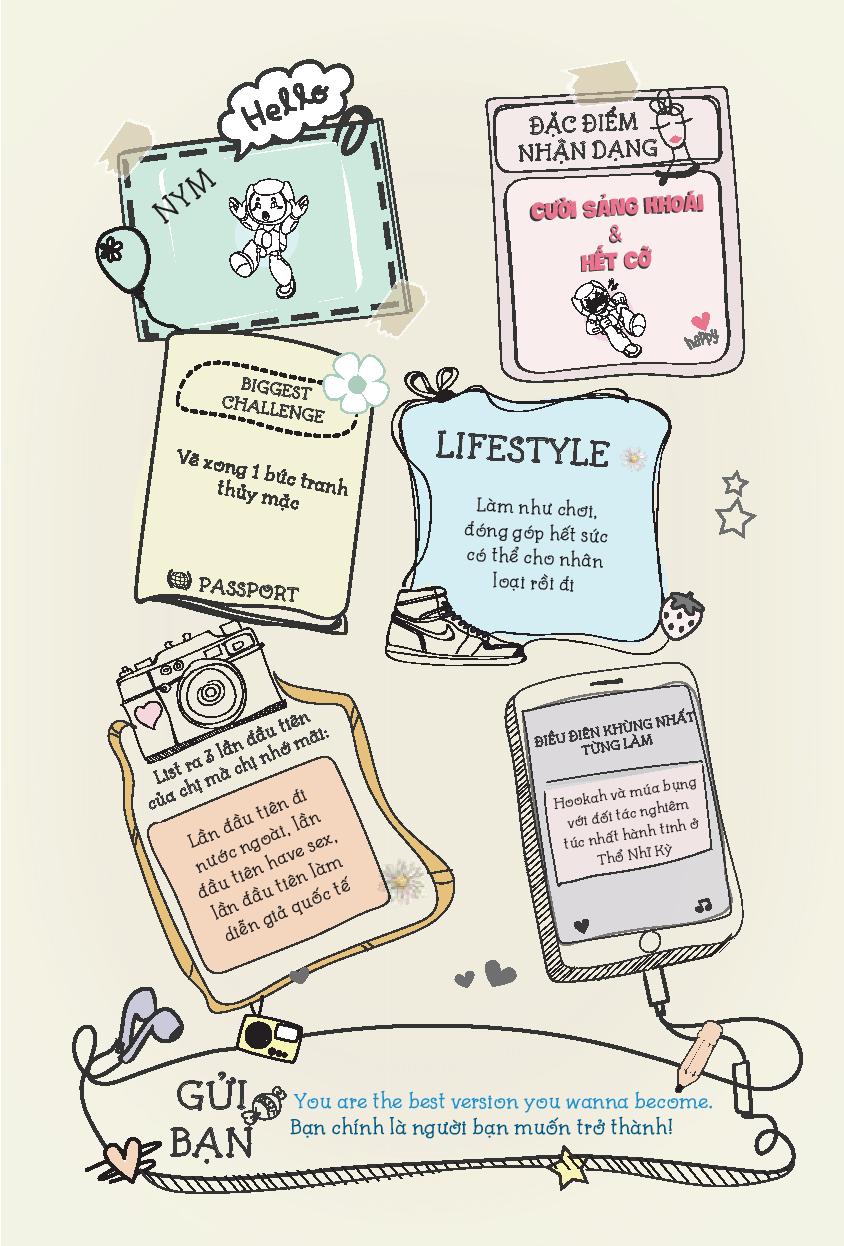 Hello
NYM
ĐẶC ĐIỂM
NHẬN DẠNG
CƯỜI SẢNG KHOÁI
&
HẾT CỠ
happy
BIGGEST
CHALLENGE
Vẽ xong 1 bức tranh
thủy mặc
PASSPORT
LIFESTYLE
Làm như chơi,
đóng góp hết sức
có thể cho nhân
loại rồi đi
List ra 3 lần đầu tiên
của chị mà chị nhớ mãi:
Lần đầu tiên đi
nước ngoài, lần
đầu tiên have sex,
lần đầu tiên làm
diễn giả quốc tế
ĐIỀU ĐIÊN KHÙNG NHẤT
TỪNG LÀM
Hookah và múa bụng
với đối tác nghiêm
túc nhất hành tinh ở
Thổ Nhĩ Kỳ
GỬI
BẠN
You are the best version you wanna become.
Bạn chính là người bạn muốn trở thành!